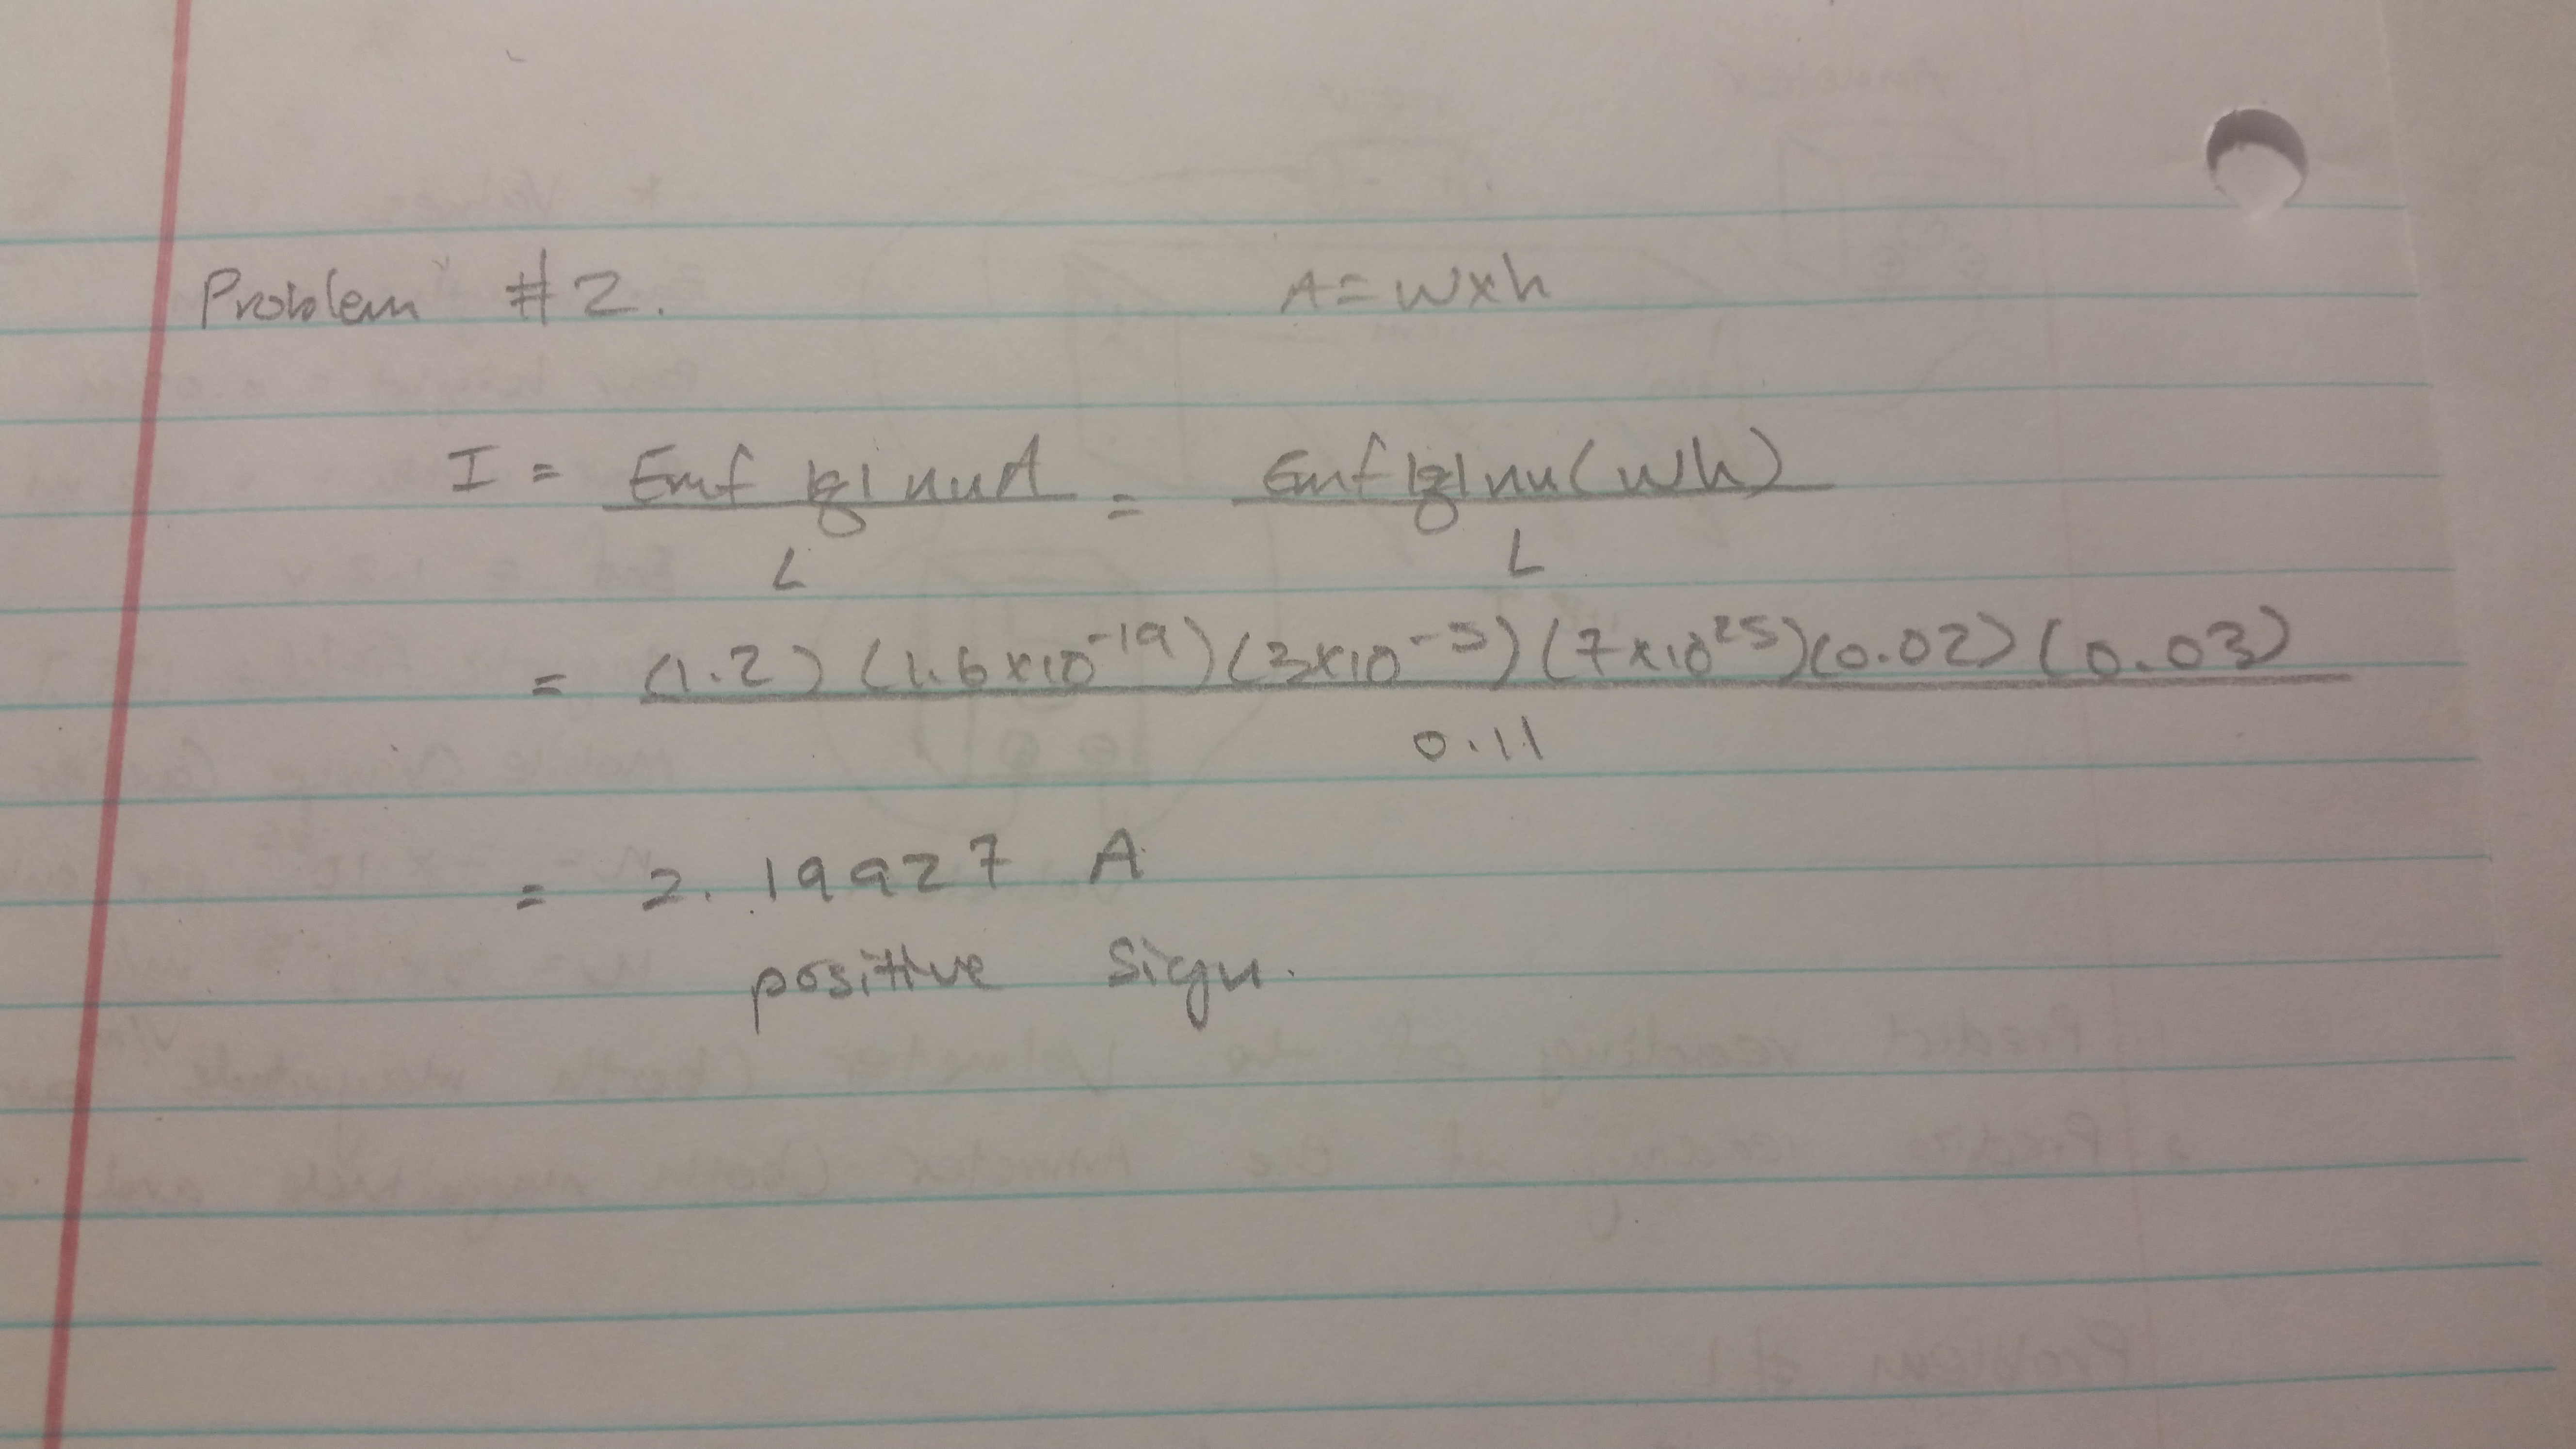 Problem #2. A=wxh
I = Emf |q| nuA / L = Emf |q| nu(wh) / L
= (1.2) (1.6x10^-19) (3x10^-5) (7x10^25) (0.02) (0.03) / 0.11
= 2.19927 A
positive sign.